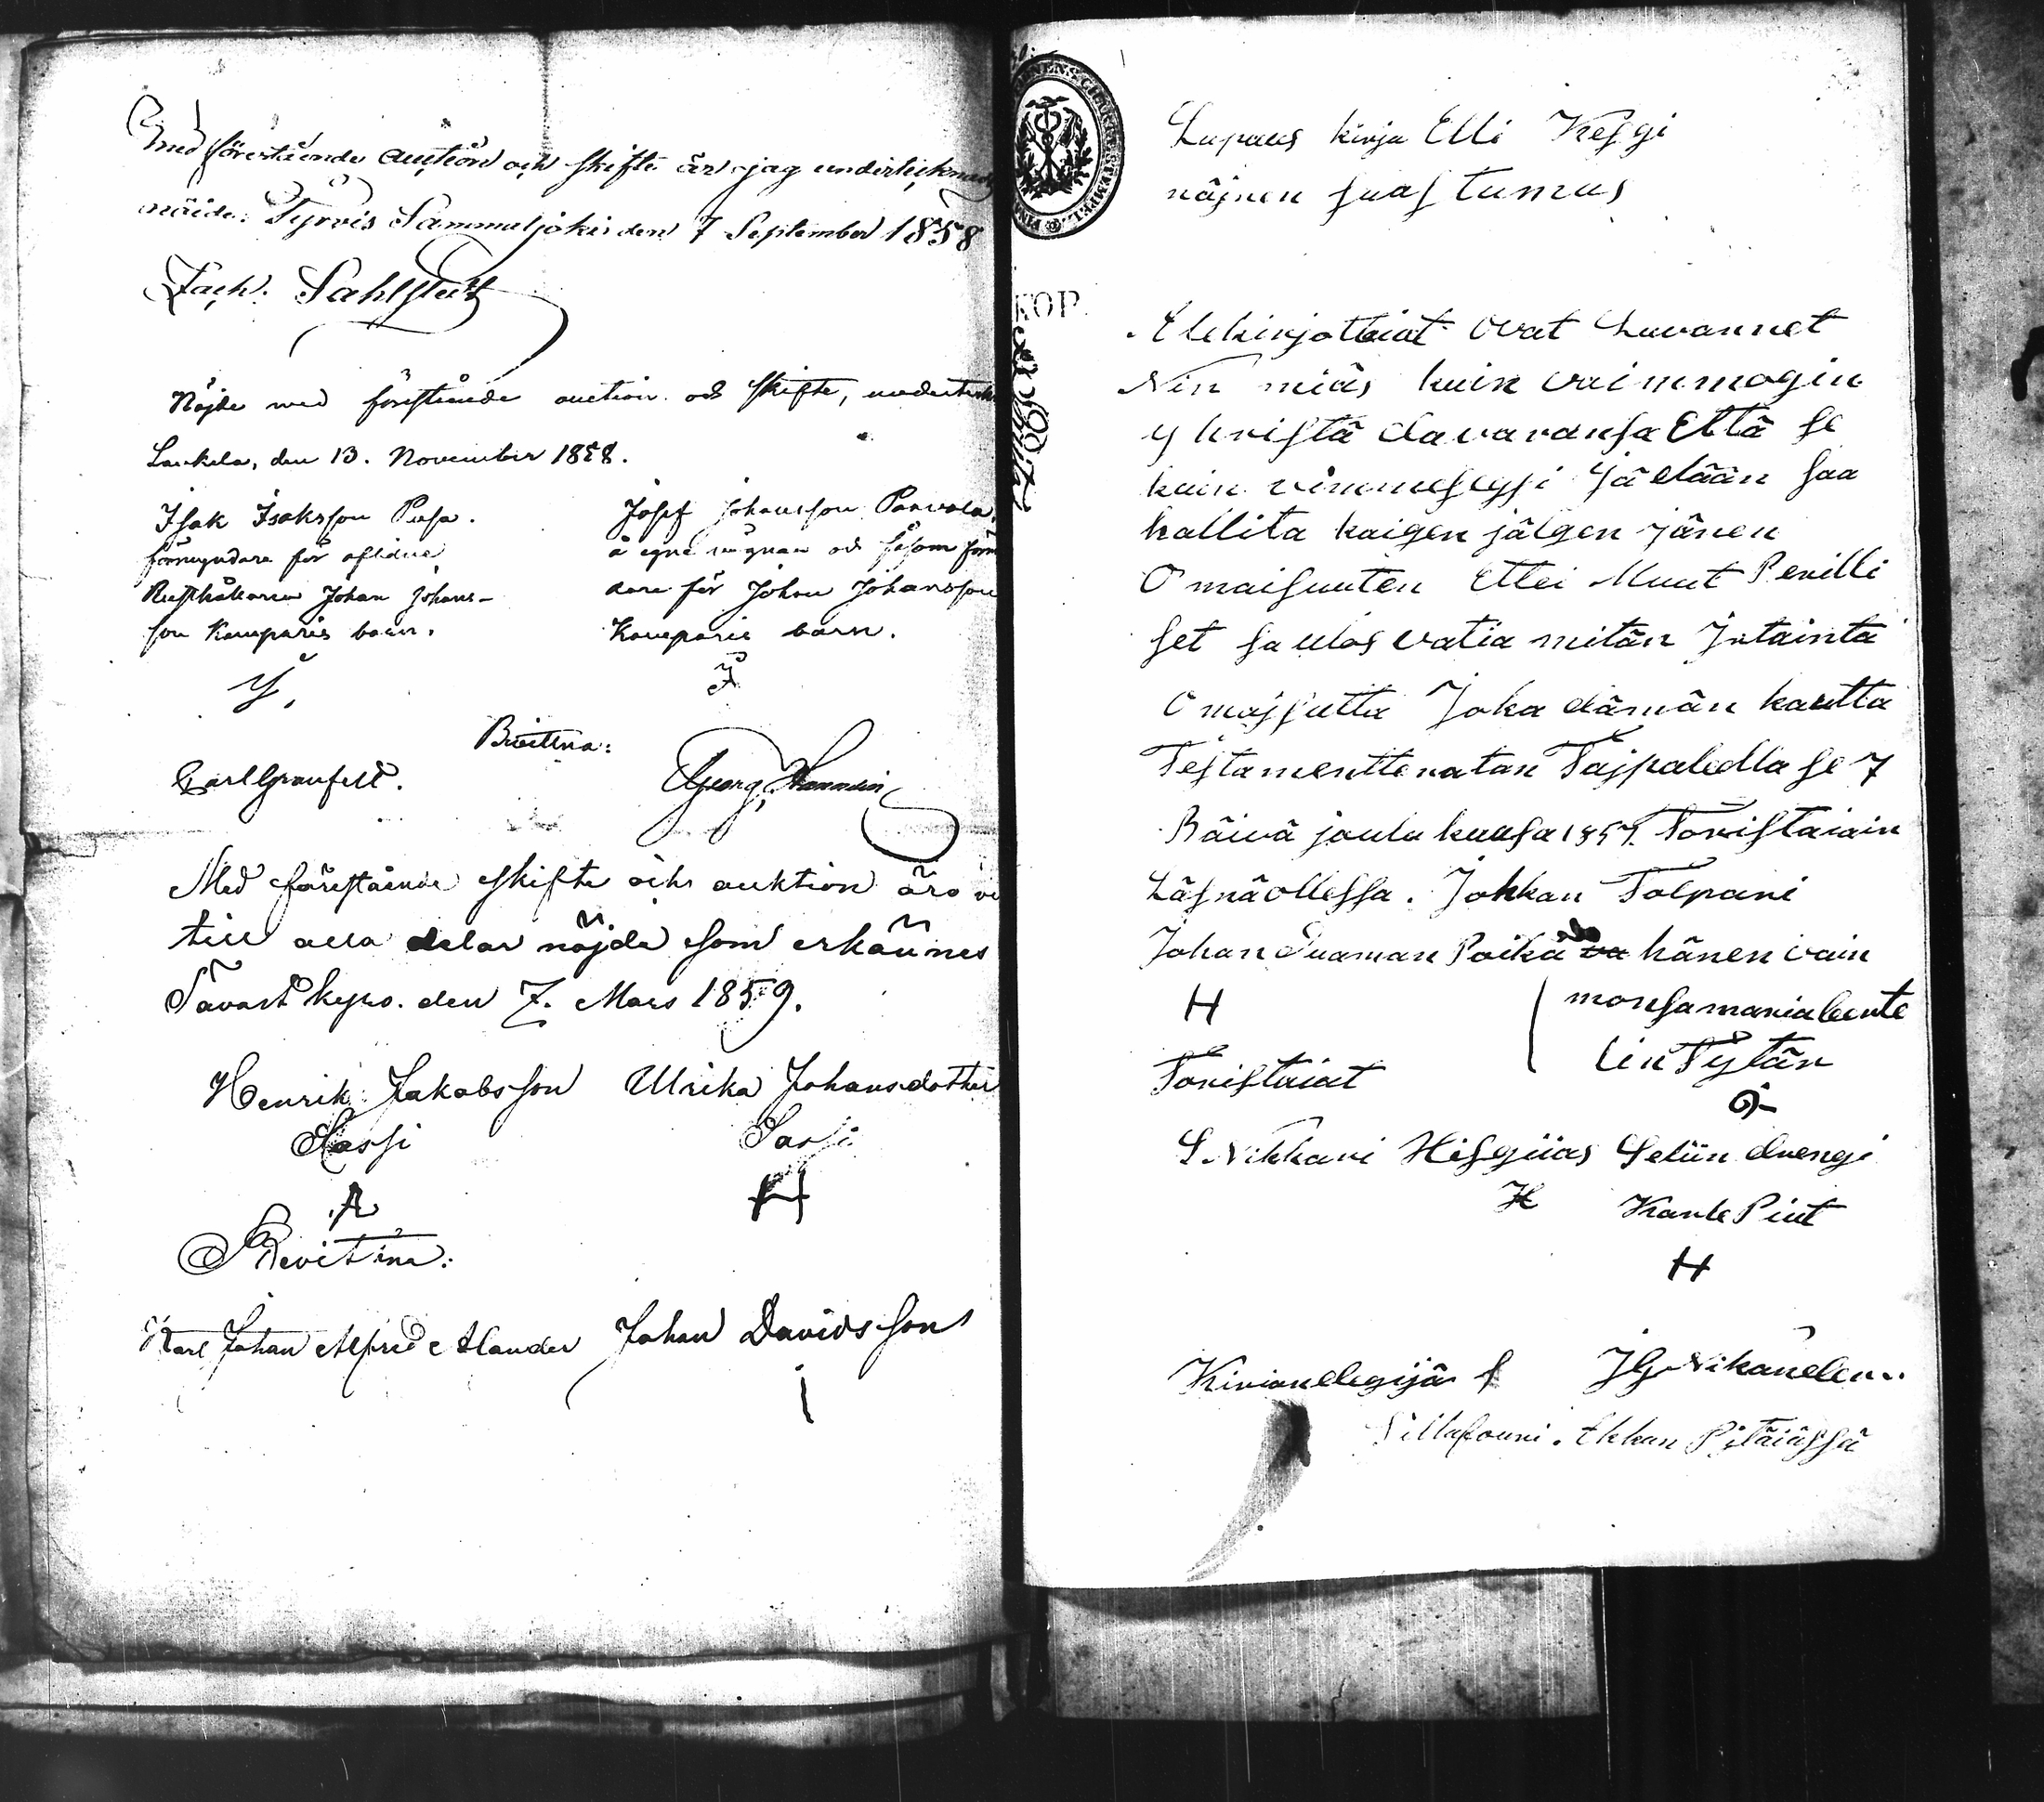 med förestående auction och skifte är jag undertecknad
nöjder Tyrvis Sammaljoki den 7 September 1858
Zach. Sahlstedt
Nöjde med förestående auction och skifte,
Laukela, den 13. November 1858.
Isak Isaksson Pusa.
förmyndare för aflidne
Rusthållaren Johan Johans-
son Kamparis barn.
Josef Johansson Parvola,
å egne vägnar och såsom förm
dare för Johan Johansson
Kamparis barn.
Bevittna:
Carl Granfelt.
Georg
Med förestående skifte och auktion äro vi
till alla delar nöjda som erkännes
Tavast kyro. den 7. Mars 1859.
Henrik Jakobsson Ulrika Johansdotter
Sassi Sassi
Bevittna:
Karl Johan Alfred Alander Johan Davidsson
Lupaus kirja Elli Kesgi
näjnen suastumus
KOP.
Alekirjottaiat ovat Luvannet
Nin miäs kuin vaimmogin
yhristä davaransa Että se
kuin vimmeseysi Jä elään saa
hallita kaigen jälgen jänen
Omaisuuten Ettei Muut Perilli
set sa ulos vatia mitän Jutainta
Omajsutta Joka dämän kautta
Testamenttenatan Tajpaledlla se 7
Bäivä joulu kuusa 1857. Toristaiain
Läsnäollessa. Johkan Tolpani
Johan Duaman Poikä hänen vain
H
monsamarialeente
Toristaiat
linTytän
S. Nikkari Hisgiias Seliin drengi
H Kaule Piut
H
Kirianelegijä JG Nikanelen
Sillafouni. Ekkan Pitäiässä